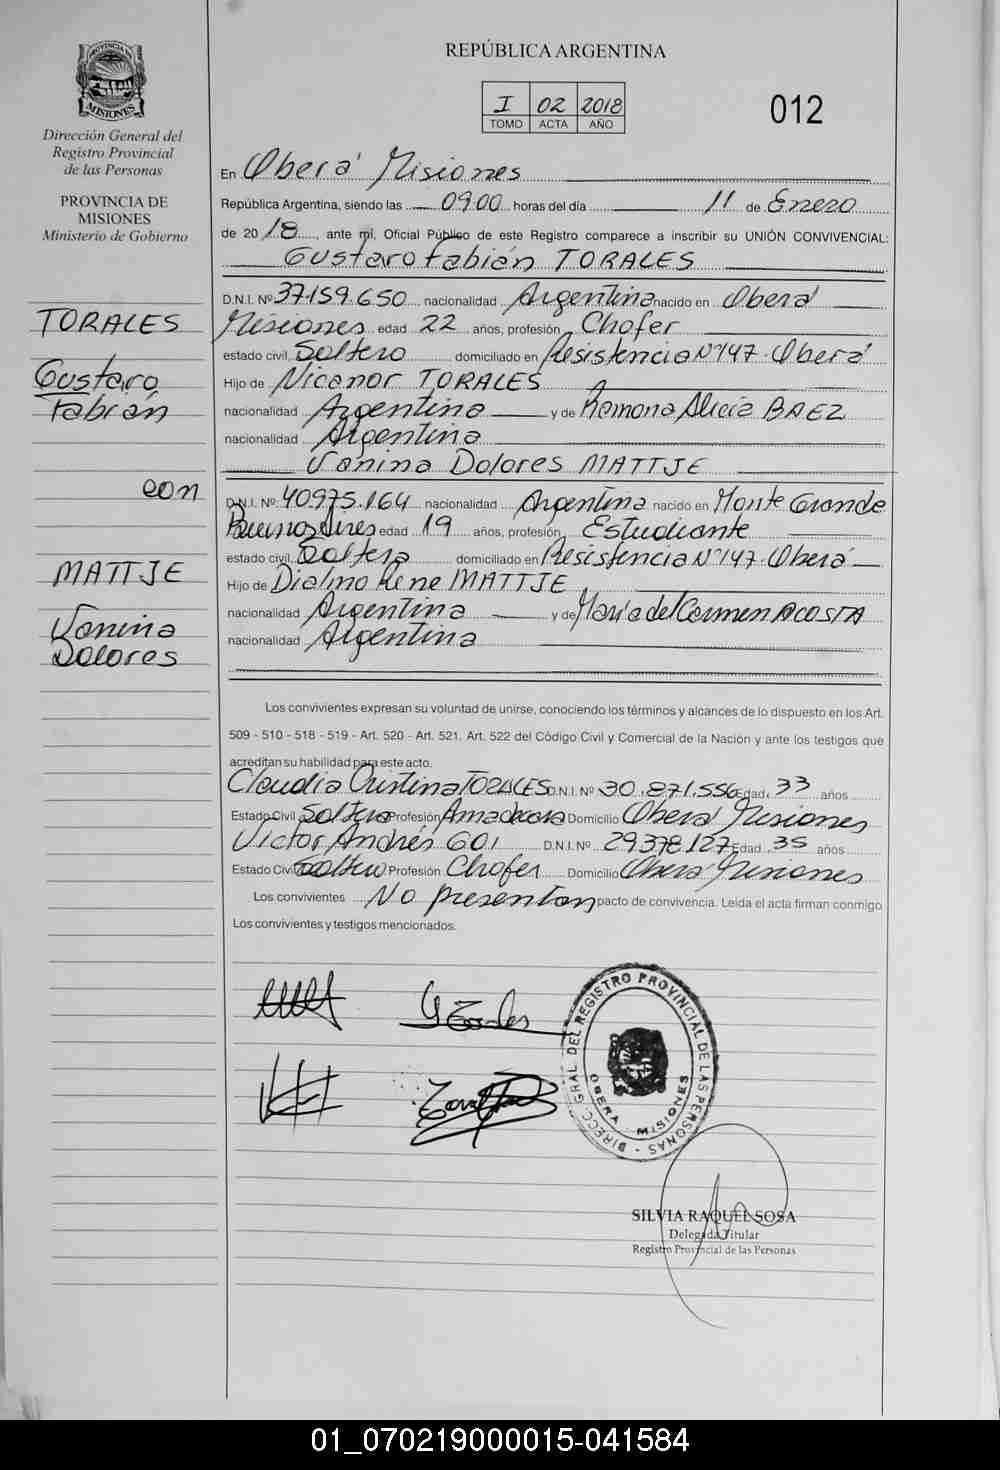 PROVINCIA DE
MISIONES
Dirección General del
Registro Provincial
de las Personas
PROVINCIA DE
MISIONES
Ministerio de Gobierno
TORALES
Gustavo
Fabián
con
MATTJE
Vanina
Dolores
REPÚBLICA ARGENTINA
I 02 2018
TOMO ACTA AÑO
012
En Oberá Misiones
República Argentina, siendo las 09.00 horas del día 11 de Enero
de 20 18, ante mí, Oficial Público de este Registro comparece a inscribir su UNIÓN CONVIVENCIAL:
Gustavo Fabián TORALES
D.N.I. Nº 37.159.650 nacionalidad Argentina nacido en Oberá
Misiones edad 22 años, profesión Chofer
estado civil, Soltero domiciliado en Resistencia Nº 147 - Oberá
Hijo de Nicanor TORALES
nacionalidad Argentina y de Ramona Alicia BAEZ
nacionalidad Argentina
Vanina Dolores MATTJE
D.N.I. Nº 40.975.164 nacionalidad Argentina nacido en Monte Grande
Buenos Aires edad 19 años, profesión, Estudiante
estado civil, Soltera domiciliado en Resistencia Nº 147 - Oberá
Hijo de Dialmo Rene MATTJE
nacionalidad Argentina y de María del Carmen ACOSTA
nacionalidad Argentina
Los convivientes expresan su voluntad de unirse, conociendo los términos y alcances de lo dispuesto en los Art.
509 - 510 - 518 - 519 - Art. 520 - Art. 521. Art. 522 del Código Civil y Comercial de la Nación y ante los testigos que
acreditan su habilidad para este acto.
Claudia Cristina TORALES D.N.I. Nº 30.871.556 Edad, 33 años
Estado Civil Soltera Profesión Ama de casa Domicilio Oberá Misiones
Victor Andrés GOI D.N.I. Nº 29.378.127 Edad 35 años
Estado Civil Soltero Profesión Chofer Domicilio Oberá Misiones
Los convivientes No presentan pacto de convivencia. Leída el acta firman conmigo
Los convivientes y testigos mencionados.
DIRECC. GRAL DEL REGISTRO PROVINCIAL DE LAS PERSONAS -
OBERA - MISIONES
SILVIA RAQUEL SOSA
Delegada Titular
Registro Provincial de las Personas
01_070219000015-041584